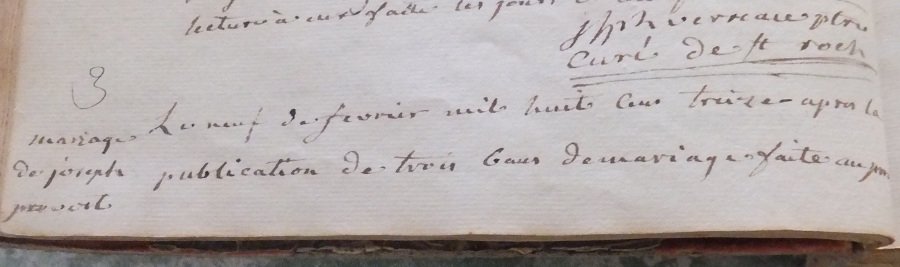 lecture à eux faite les jours
Jph verreau ptre
Curé de st roch
3
mariage
de joseph
provost
Le neuf de fevrier mil huit Cens treize apres la
publication de trois bans de mariage faite au